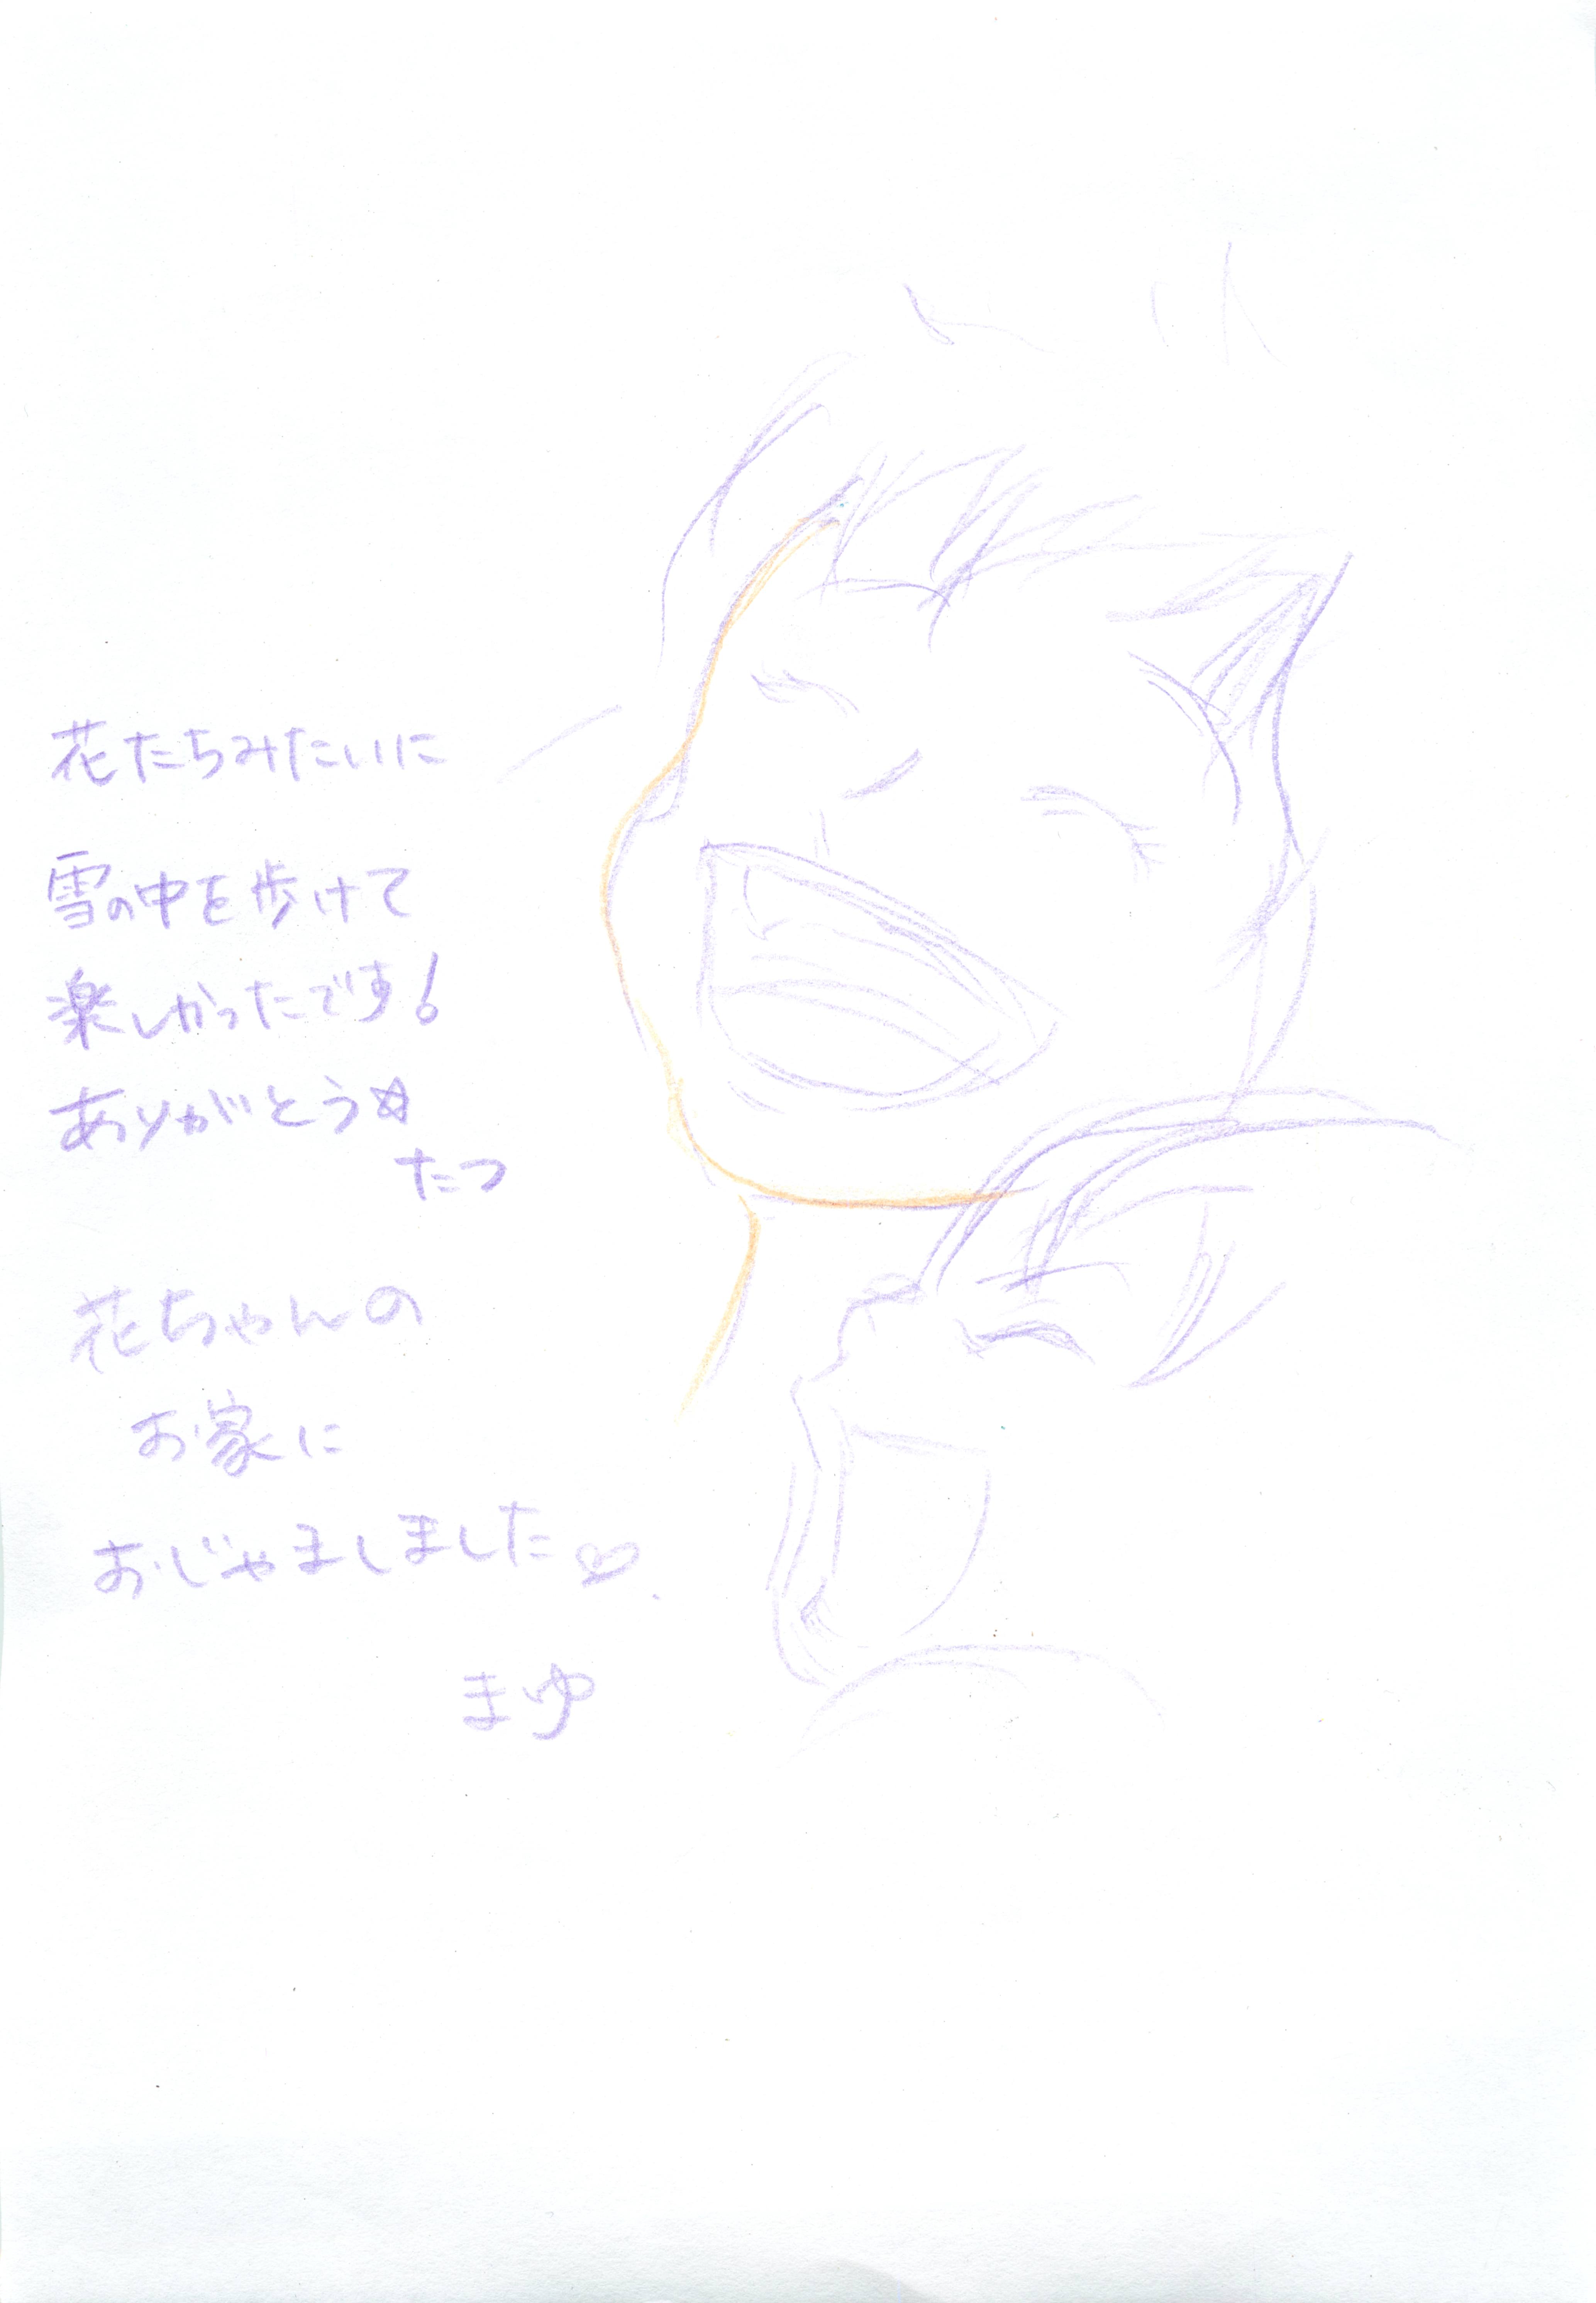 花たちみたいに
雪の中を歩けて
楽しかったです!
ありがとう☆
たつ
花ちゃんの
お家に
おじゃましました♡
まゆ